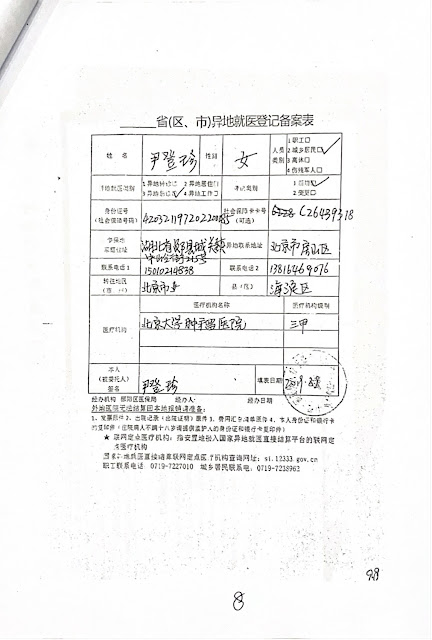 省(区、市)异地就医登记备案表
姓 名 尹登珍 性别 女 人员类别 1 职工□ 2 城乡居民□ 3 离休□ 4 伤残军人□
异地就医类别 1 异地转诊□ 2 异地居住□ 3 异地安置□ 4 异地工作□ 登记类别 1 新增□ 2 变更□
身份证号 (社会保障号码) 社会保障卡卡号 (可选) C26439318
参保地 家庭住址 异地联系地址 北京市房山区
联系电话1 15010214838 联系电话2 13816469076
转往地区 (市 州) 北京市 县(区) 海淀区
医疗机构 医疗机构名称 医疗机构级别
北京大学肿瘤医院 三甲
本人 (被委托人) 签名 尹登珍 填表日期
经办机构 郧阳区医保局 经办人: 经办日期
外地医院无法结算回本地报销请准备:
1、发票原件 2、出院记录(出院证明)原件 3、费用汇总清单原件 4、本人身份证和银行卡
的复印件(住院病人不满十八岁请提供监护人的身份证和银行卡复印件)
★ 联网定点医疗机构：指安置地纳入国家异地就医直接结算平台的联网定
点医疗机构
国家异地就医直接结算联网定点医疗机构查询网址: si.12333.gov.cn
职工联系电话 0719-7227010 城乡居民联系电 0719-7238963
8